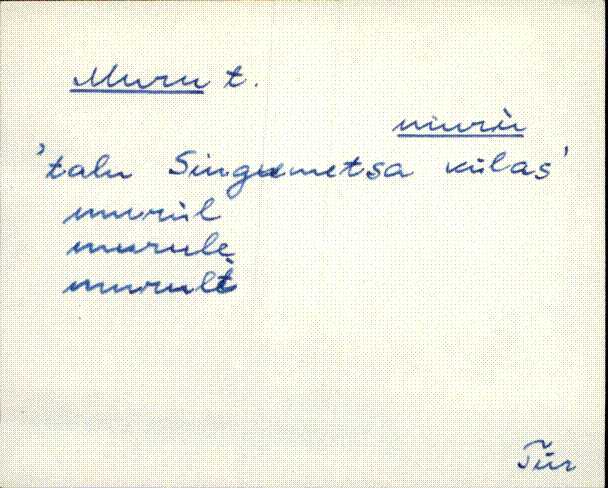 Muru t.
murù
'talu Singumetsa külas'
murùl
murulę
murult̀
Tür